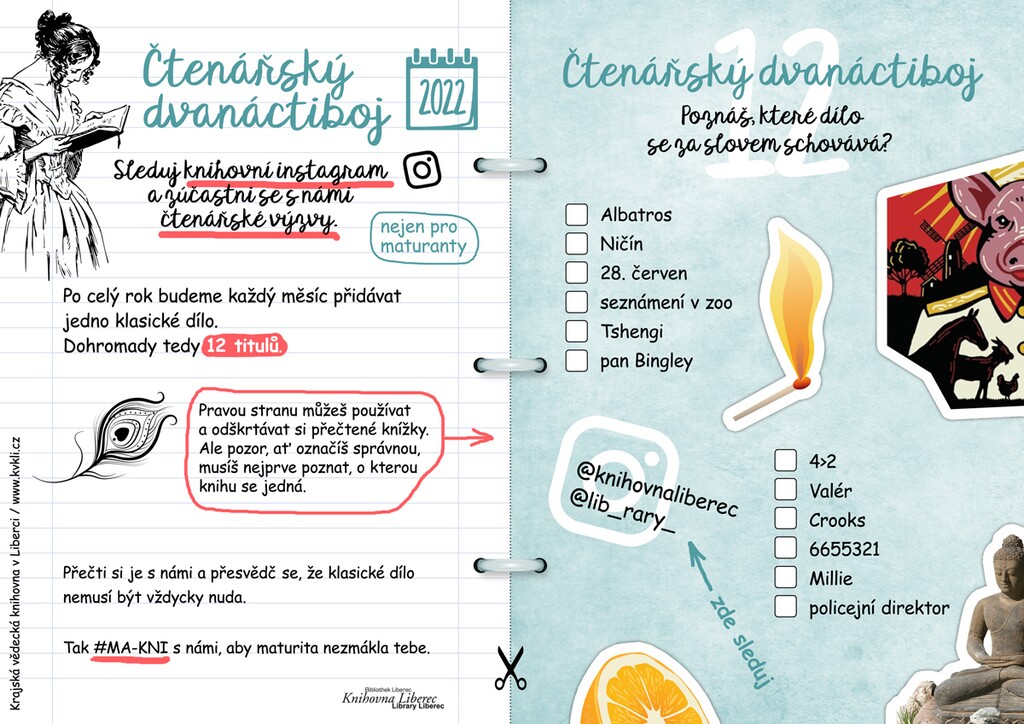 Čtenářský
dvanáctiboj
2022
Sleduj knihovní instagram
a zúčastni se s námi
čtenářské výzvy.
nejen pro
maturanty
Po celý rok budeme každý měsíc přidávat
jedno klasické dílo.
Dohromady tedy 12 titulů.
Pravou stranu můžeš používat
a odškrtávat si přečtené knížky.
Ale pozor, ať označíš správnou,
musíš nejprve poznat, o kterou
knihu se jedná.
Přečti si je s námi a přesvědč se, že klasické dílo
nemusí být vždycky nuda.
Tak #MA-KNI s námi, aby maturita nezmákla tebe.
Krajská vědecká knihovna v Liberci / www.kvkli.cz
Bibliothek Liberec
Knihovna Liberec
Library Liberec
12
Čtenářský dvanáctiboj
Poznáš, které dílo
se za slovem schovává?
Albatros
Ničín
28. červen
seznámení v zoo
Tshengi
pan Bingley
@knihovnaliberec
@lib_rary_
zde sleduj
4>2
Valér
Crooks
6655321
Millie
policejní direktor